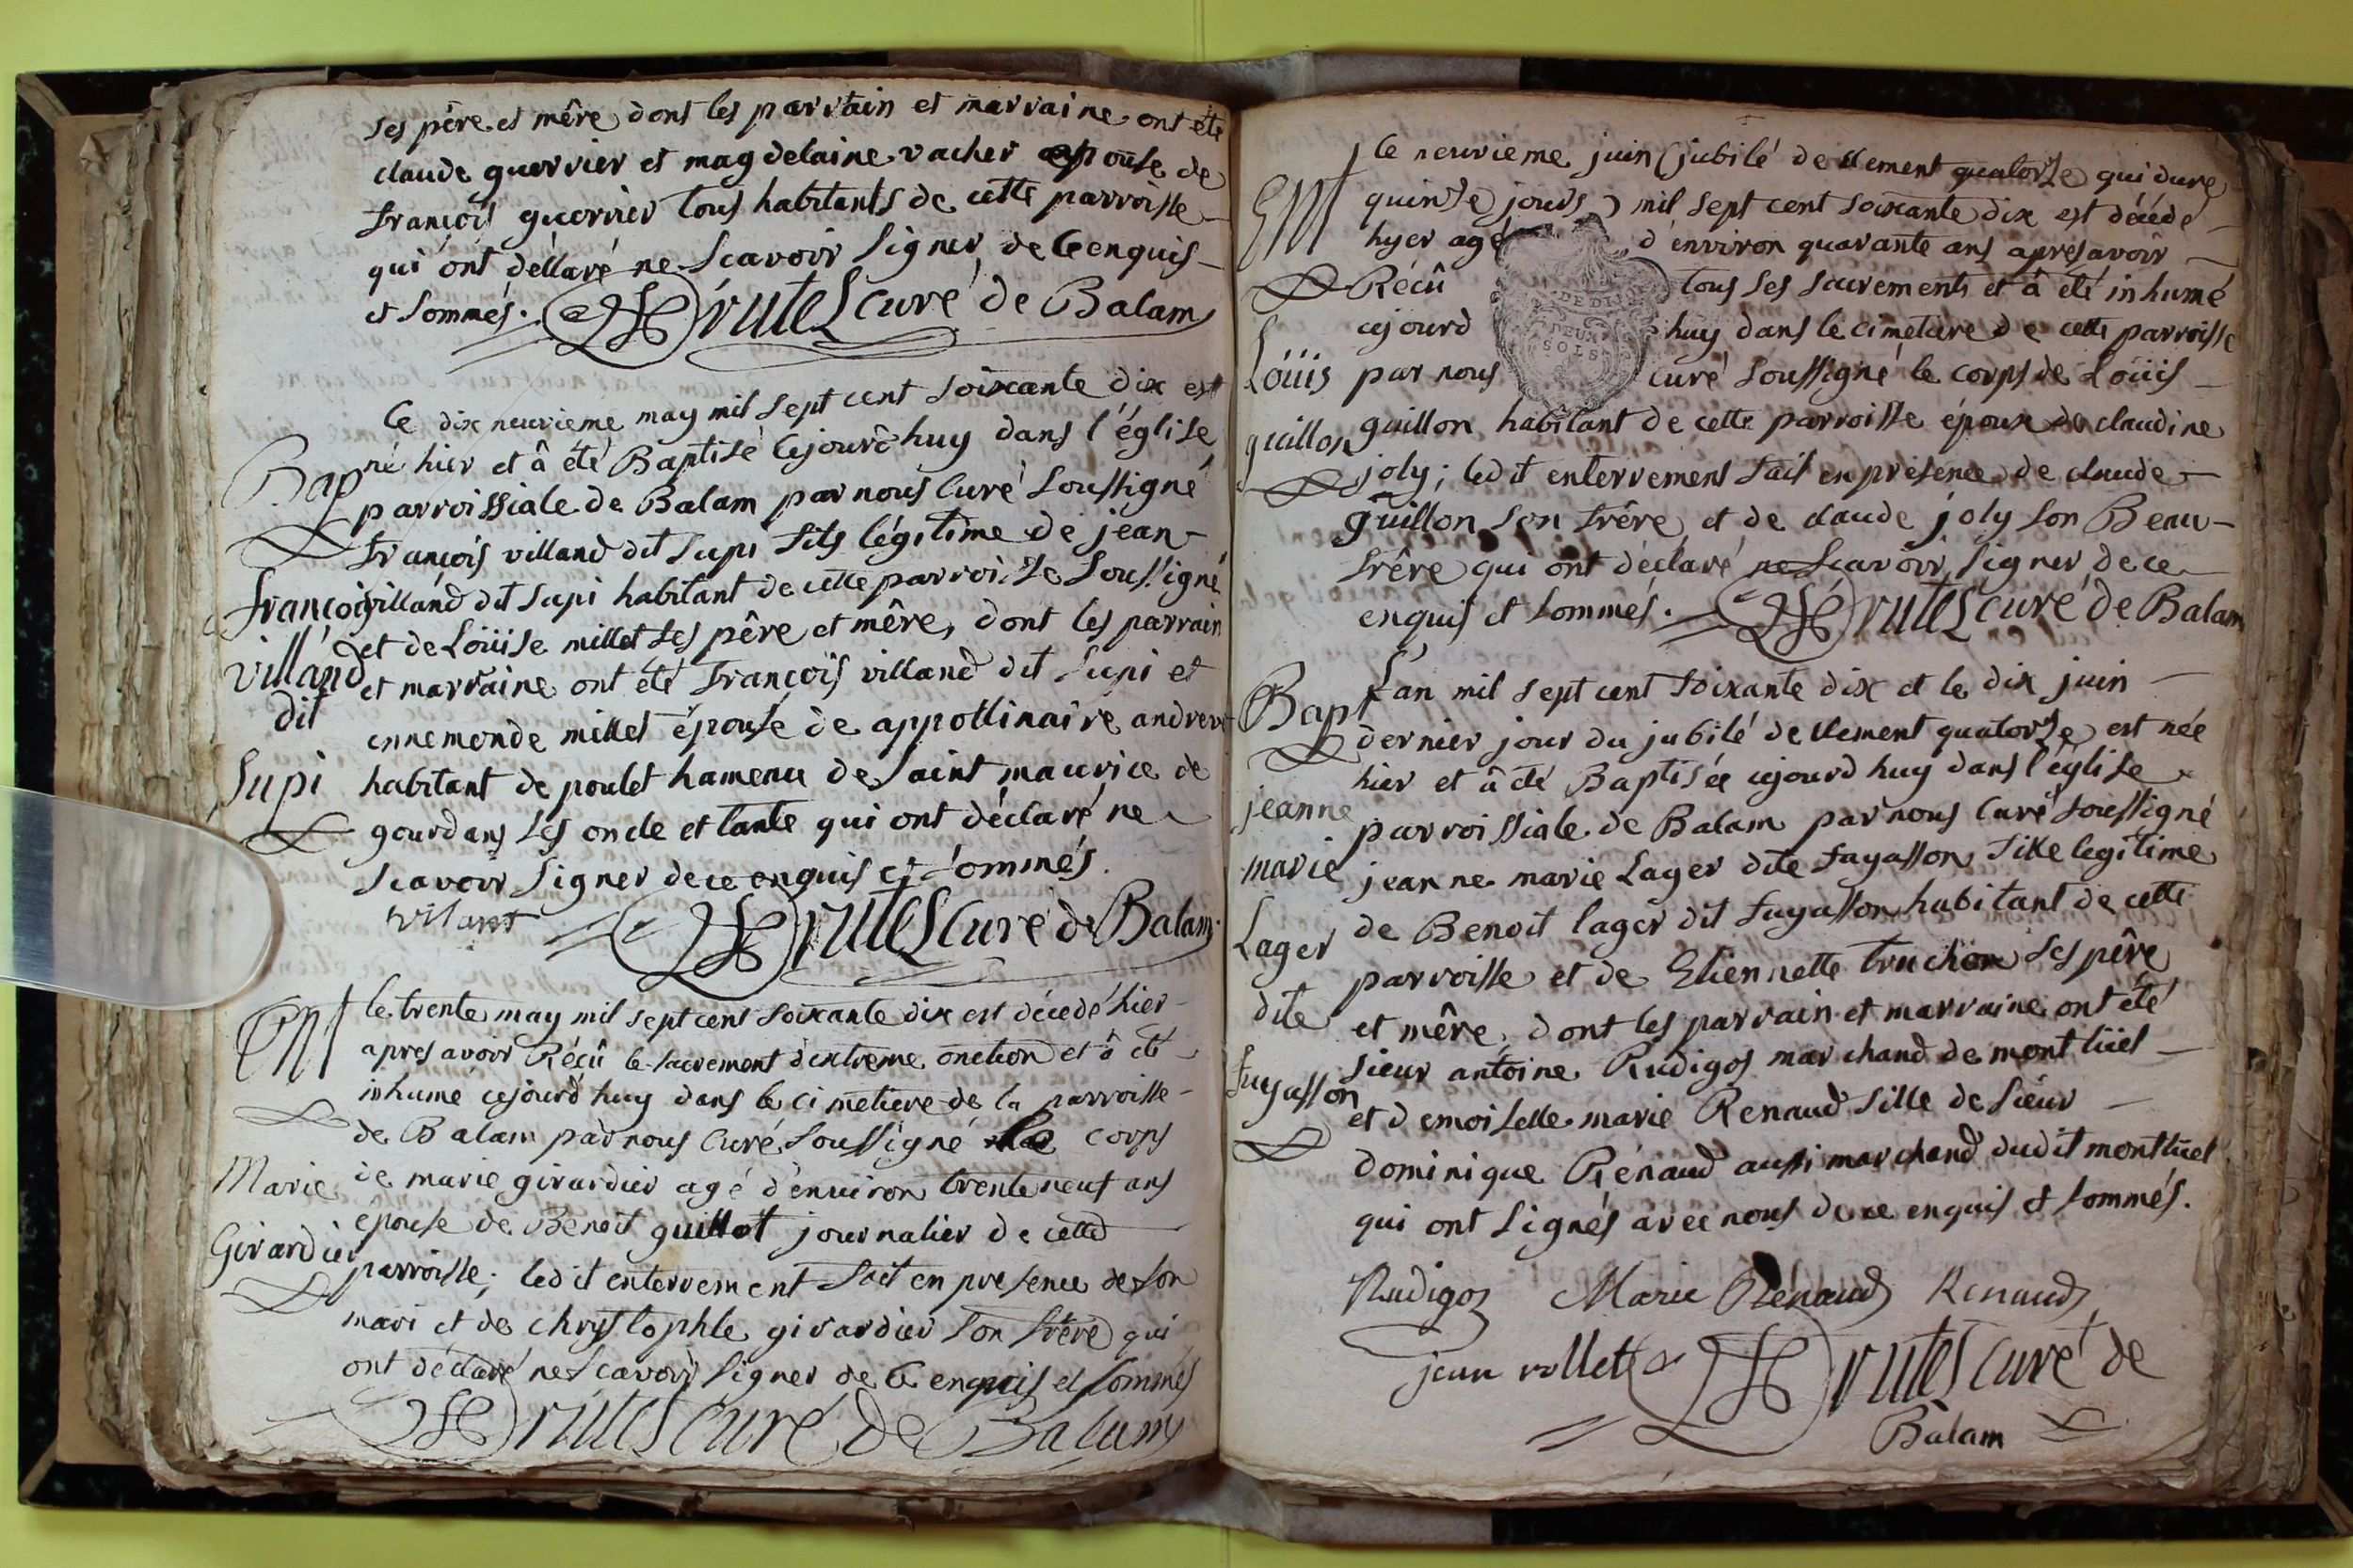 ses père et mêre dont les parrain et marraine ont été
claude guerrier et magdelaine vacher epouse de
françois guerrier tous habitants de cette parroisse
qui ont déclaré ne scavoir signer de ce enquis
et sommés. Brutel curé de Balam
Ce dix neuvieme may mil sept cent soixante dix est
né hier et â été Baptisé cejourd'huy dans l'église
Bap
parroissiale de Balam par nous curé soussigné
françois villand dit supi fils légitime de jean
françois
villand dit supi habitant de cette parroisse soussigné
et de Loüise millet ses pêre et mêre, dont les parrain
villand
et marraine ont été françois villand dit supi et
dit
ennemonde millet épouse de appollinaire andrevet
Supi
habitant de poulet hameau de saint maurice de
gourdans ses oncle et tante qui ont déclaré ne
scavoir signer de ce enquis et sommés.
vilant Brutel curé de Balam
le trente may mil sept cent soixante dix est décedé hier
Ent
apres avoir Réçû le sacrement d'extreme onction et â été
inhumé cejourd'huy dans le cimetiere de la parroisse
de Balam par nous curé soussigné le corps
Marie
de marie girardier agé d'environ trente neuf ans
épouse de Benoit guillot journalier de cette
Girardier
parroisse; ledit enterrement fait en presence de son
mari et de chrystophle girardier son frêre qui
ont déclaré ne scavoir signer de ce enquis et sommés
Brutel curé de Balam
le neuvieme juin (jubilé de clement quatorze qui dure
Ent
quinze jours) mil sept cent soixante dix est décédé
hyer agé d'environ quarante ans apres avoir
Récû tous ses sacrements et â été inhumé
cejourd huy dans le cimetiere de cette parroisse
DEUX
SOLS
Loüis
par nous curé soussigné le corps de Loüis
guillon
guillon habitant de cette parroisse époux de claudine
joly; ledit enterrement fait en présence de claude
guillon son frêre et de claude joly son Beau-
frêre qui ont déclaré ne scavoir signer de ce
enquis et sommés. Brutel curé de Balam
Bapt
L'an mil sept cent soixante dix et le dix juin
dernier jour du jubilé de clement quatorze est née
hier et â été Baptisée cejourd huy dans l'église
jeanne
parroissiale de Balam par nous curé soussigné
marie
jeanne marie Lager dite fayasson fille legitime
Lager
de Benoit lager dit fayasson habitant de cette
parroisse et de Etiennette truchon ses pêre
dite
et mêre, dont les parrain et marraine ont été
fayasson
sieur antoine Rudigoz marchand de montlüel
et demoiselle marie Renaud fille de sieur
dominique Rénaud aussi marchand dudit montlüel
qui ont signés avec nous de ce enquis et sommés.
Rudigoz Marie Rénaud Renaud
jean vollet Brutel curé de
Balam